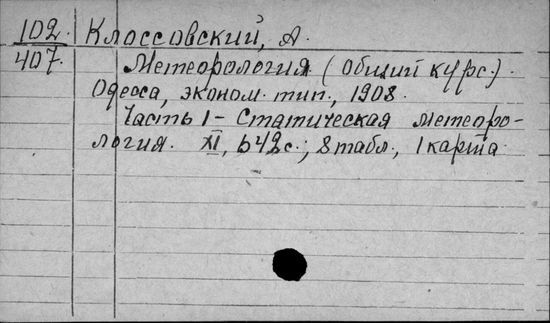 102. Клоссовский, А.
407. Метеорология (общий курс).
Одесса, эконом. тип., 1908.
Часть 1 - Статическая метеоро-
логия. XI, 642 с.; 8 табл., 1 карта